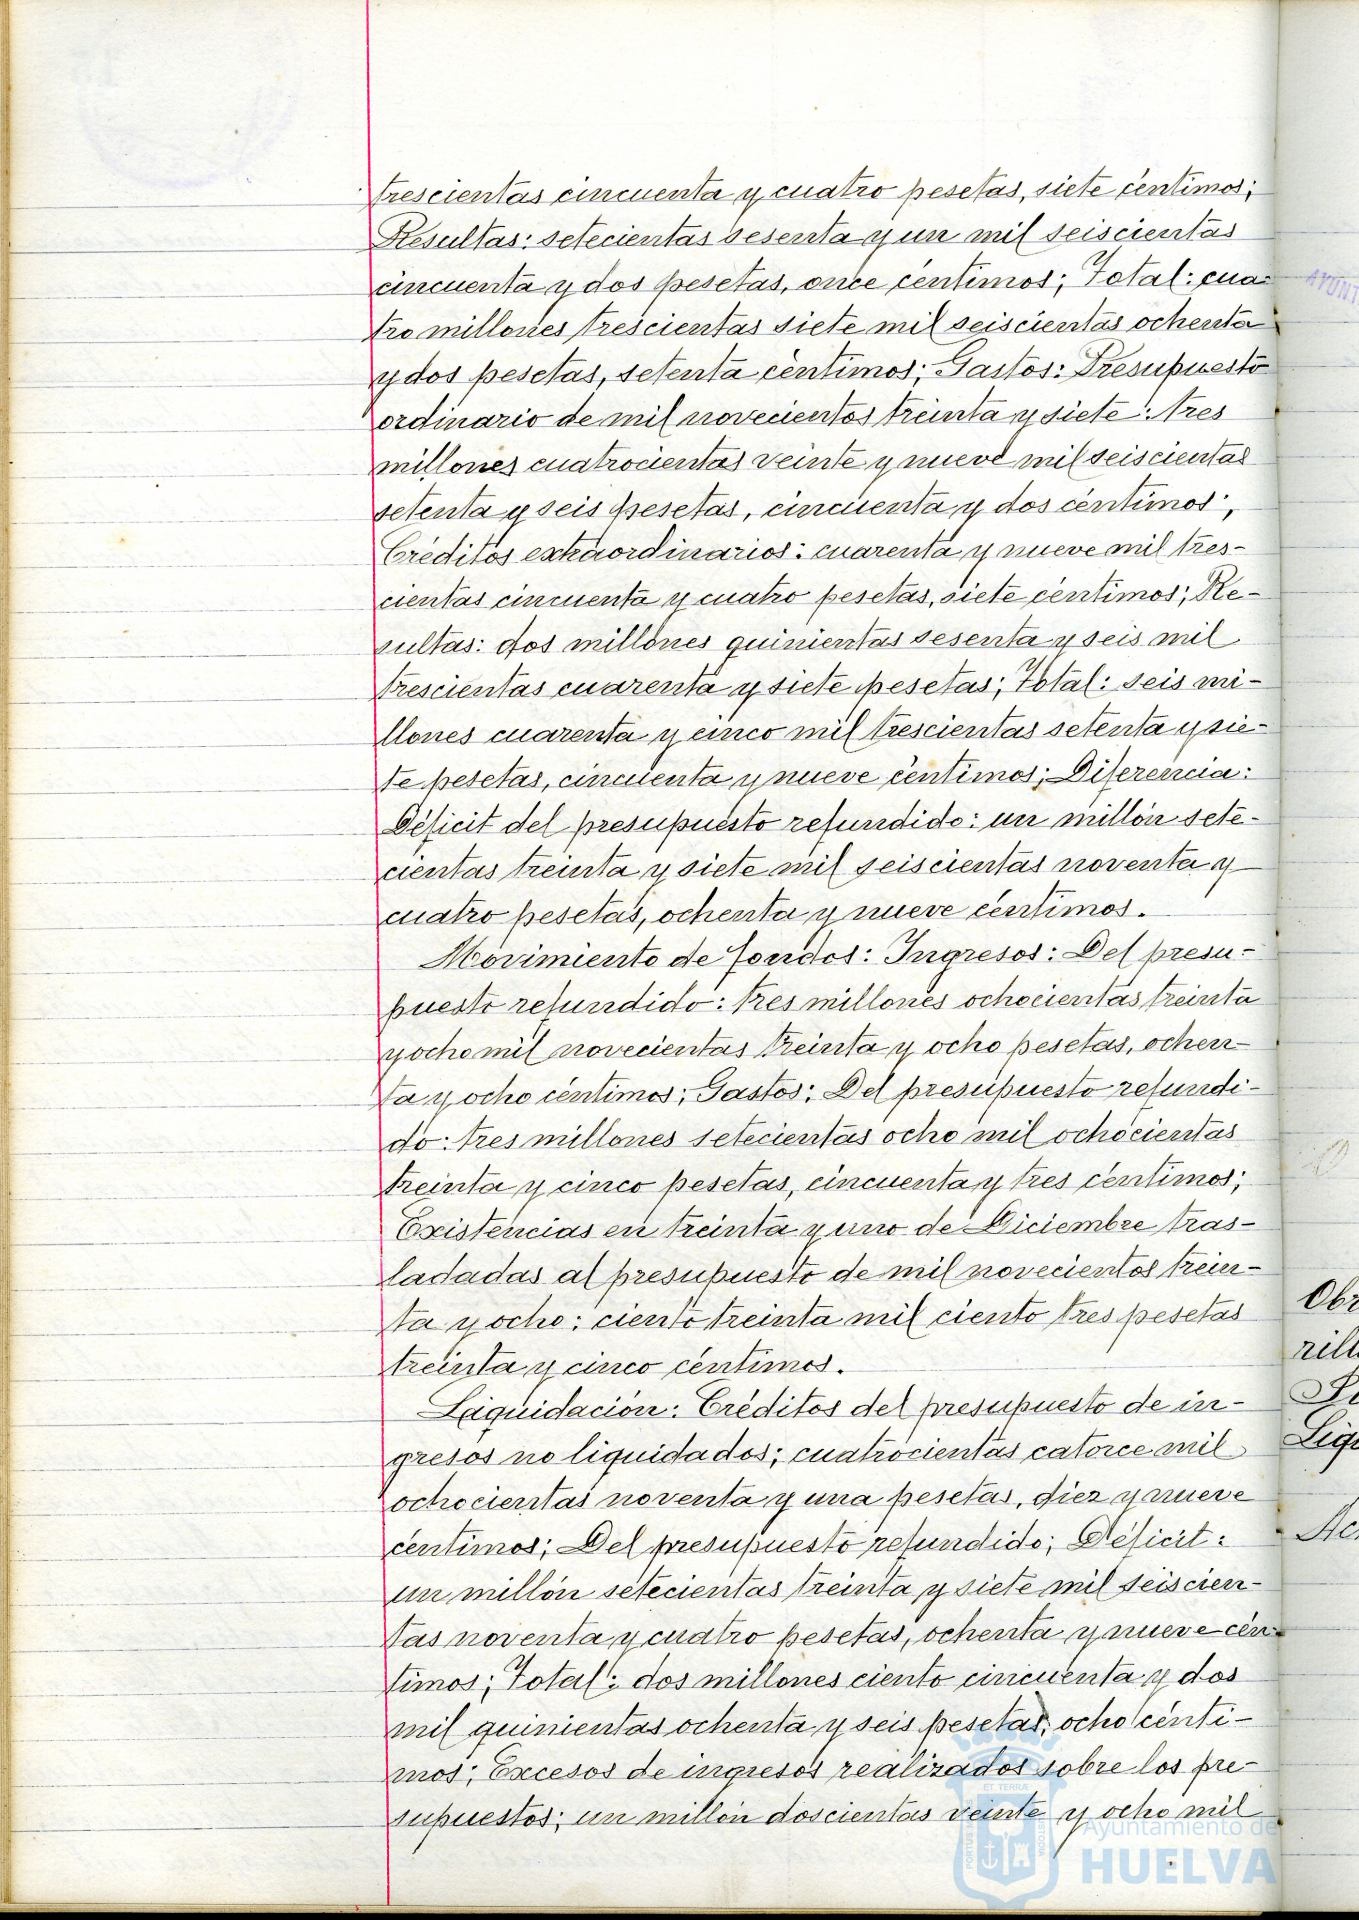 trescientas cincuenta y cuatro pesetas, siete céntimos;
Resultas: setecientas sesenta y un mil seiscientas
cincuenta y dos pesetas, once céntimos; Total: cua-
tro millones trescientas siete mil seiscientas ochenta
y dos pesetas, setenta céntimos; Gastos: Presupuesto
ordinario de mil novecientos treinta y siete: tres
millones cuatrocientas veinte y nueve mil seiscientas
setenta y seis pesetas, cincuenta y dos céntimos;
Créditos extraordinarios: cuarenta y nueve mil tres-
cientas cincuenta y cuatro pesetas, siete céntimos; Re-
sultas: dos millones quinientas sesenta y seis mil
trescientas cuarenta y siete pesetas; Total: seis mi-
llones cuarenta y cinco mil trescientas setenta y sie-
te pesetas, cincuenta y nueve céntimos; Diferencia:
Déficit del presupuesto refundido: un millón sete-
cientas treinta y siete mil seiscientas noventa y
cuatro pesetas, ochenta y nueve céntimos.
Movimiento de fondos: Ingresos: Del presu-
puesto refundido: tres millones ochocientas treinta
y ocho mil novecientas treinta y ocho pesetas, ochen-
ta y ocho céntimos; Gastos: Del presupuesto refundi-
do: tres millones setecientas ocho mil ochocientas
treinta y cinco pesetas, cincuenta y tres céntimos;
Existencias en treinta y uno de Diciembre tras-
ladadas al presupuesto de mil novecientos trein-
ta y ocho: ciento treinta mil ciento tres pesetas
treinta y cinco céntimos.
Liquidación: Créditos del presupuesto de in-
gresos no liquidados; cuatrocientas catorce mil
ochocientas noventa y una pesetas, diez y nueve
céntimos; Del presupuesto refundido; Déficit:
un millón setecientas treinta y siete mil seiscien-
tas noventa y cuatro pesetas, ochenta y nueve cén-
timos; Total: dos millones ciento cincuenta y dos
mil quinientas ochenta y seis pesetas, ocho cénti-
mos; Excesos de ingresos realizados sobre los pre-
supuestos; un millón doscientas veinte y ocho mil
Ayuntamiento de
HUELVA
AYUNT
Obr
rill
Liqu